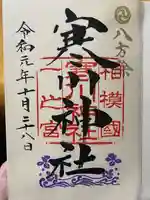 八方除
寒川神社
相模國
一之宮
令和元年十月二十八日